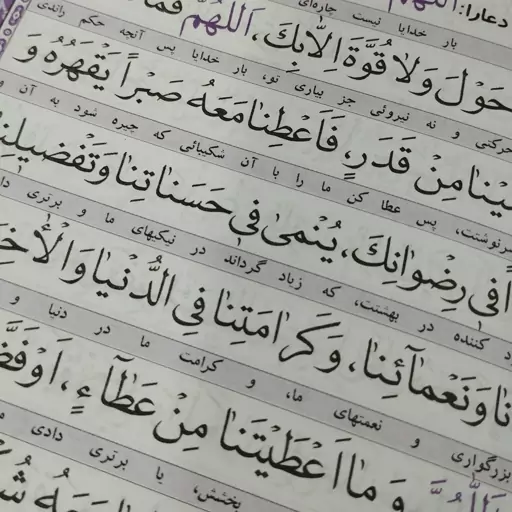 دعارا: اللهم
بار خدایا نیست چاره‌ای
حَوْلَ وَلَا قُوَّةَ اِلَّا بِكَ، اَللّٰهُمَّ فَمَا
حرکتی و نه نیروئی جز بیاری تو، بار خدایا پس آنچه حکم راندی
مِنْ قَدَرٍ، فَاَعْطِنَا مَعَهُ صَبْرًا يَقْهَرُهُ وَ
سرنوشت، پس عطا کن ما را با آن شکیبائی که چیره شود به آن و
فِى رِضْوَانِكَ، يُنْمٰى فِى حَسَنَاتِنَا وَتَفْضِيلِنَا
کننده در بهشتت، که زیاد گرداند در نیکیهای ما و برتری
نَا وَنَعْمَآئِنَا، وَكَرَامَتِنَا فِى الدُّنْيَا وَالْاٰخِ
بزرگواری و نعمتهای ما، و کرامت ما در دنیا و
اَللّٰهُمَّ وَ مَا اَعْطَيْتَنَا مِنْ عَطَآءٍ، اَوْ فَضَّ
بخشش، یا برتری دادی
مَعَهُ